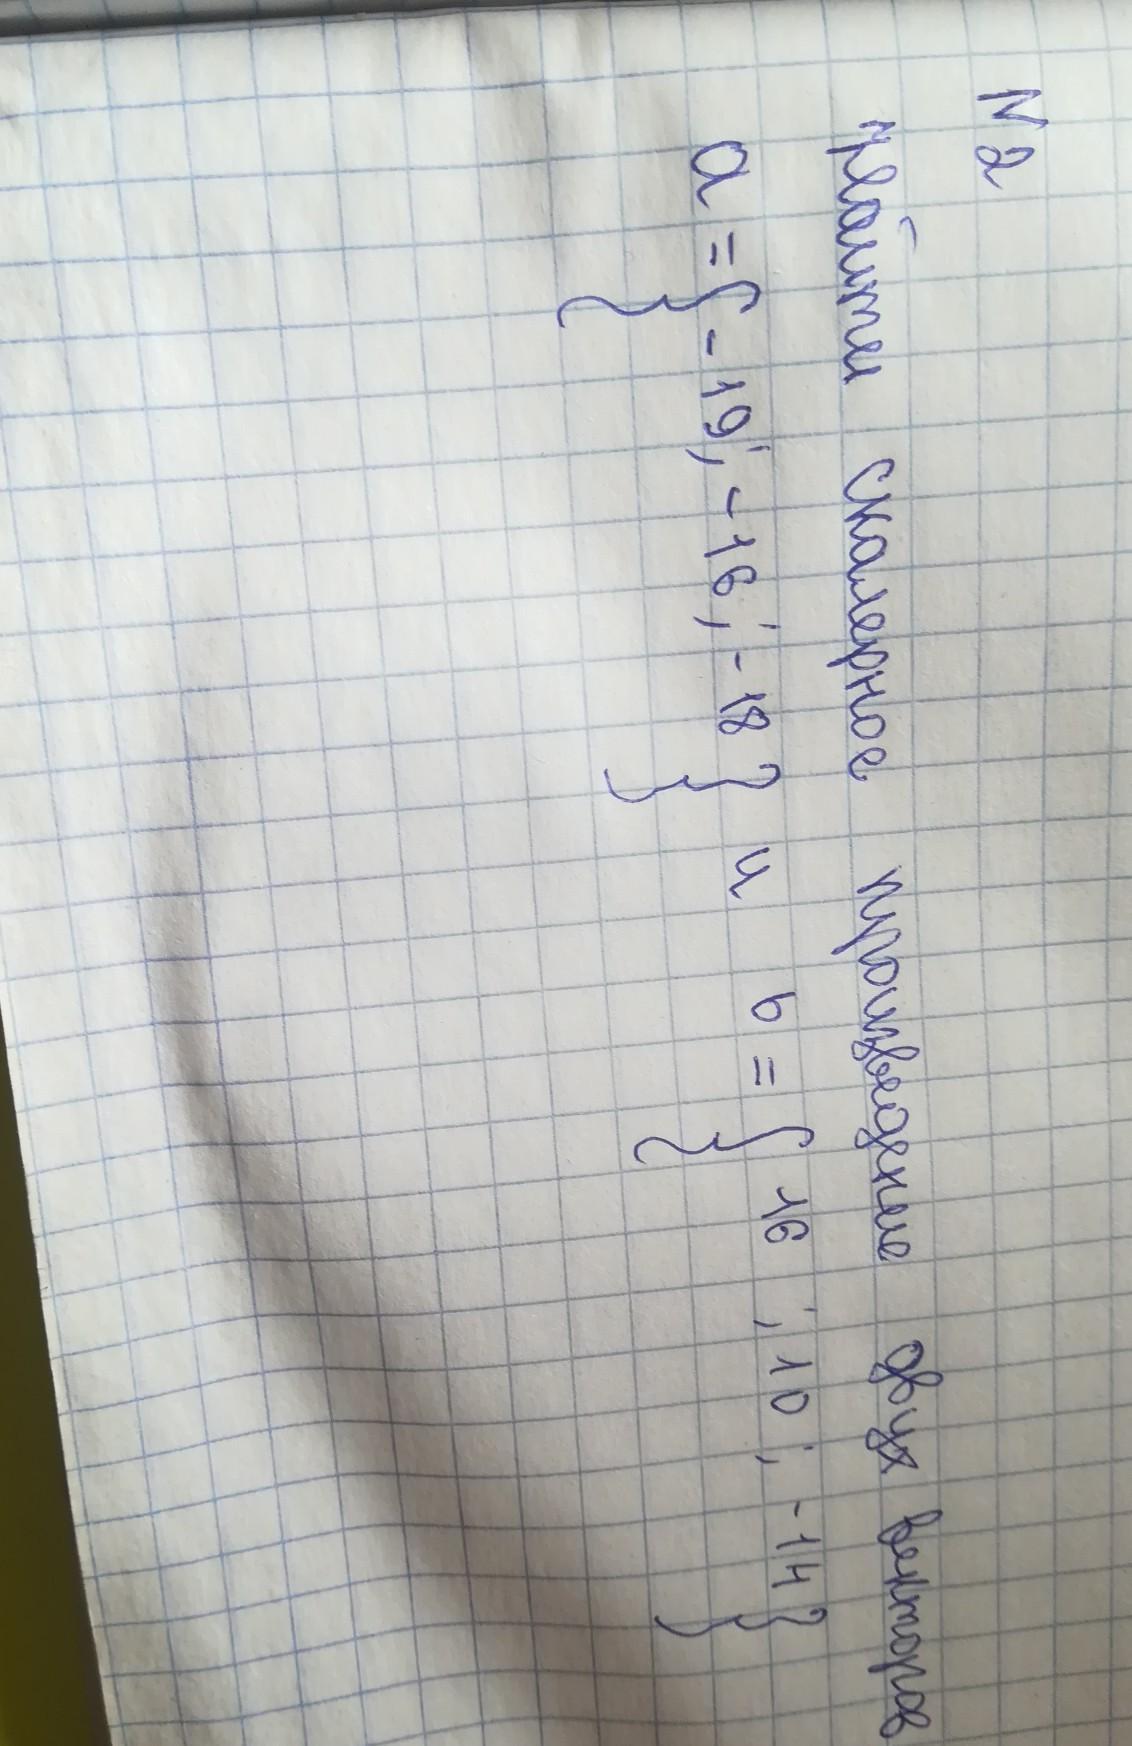 N 2
Найти скалерное произведение двух векторов
a = { -19; -16; -18 } и b = { 16 ; 10 ; -14 }